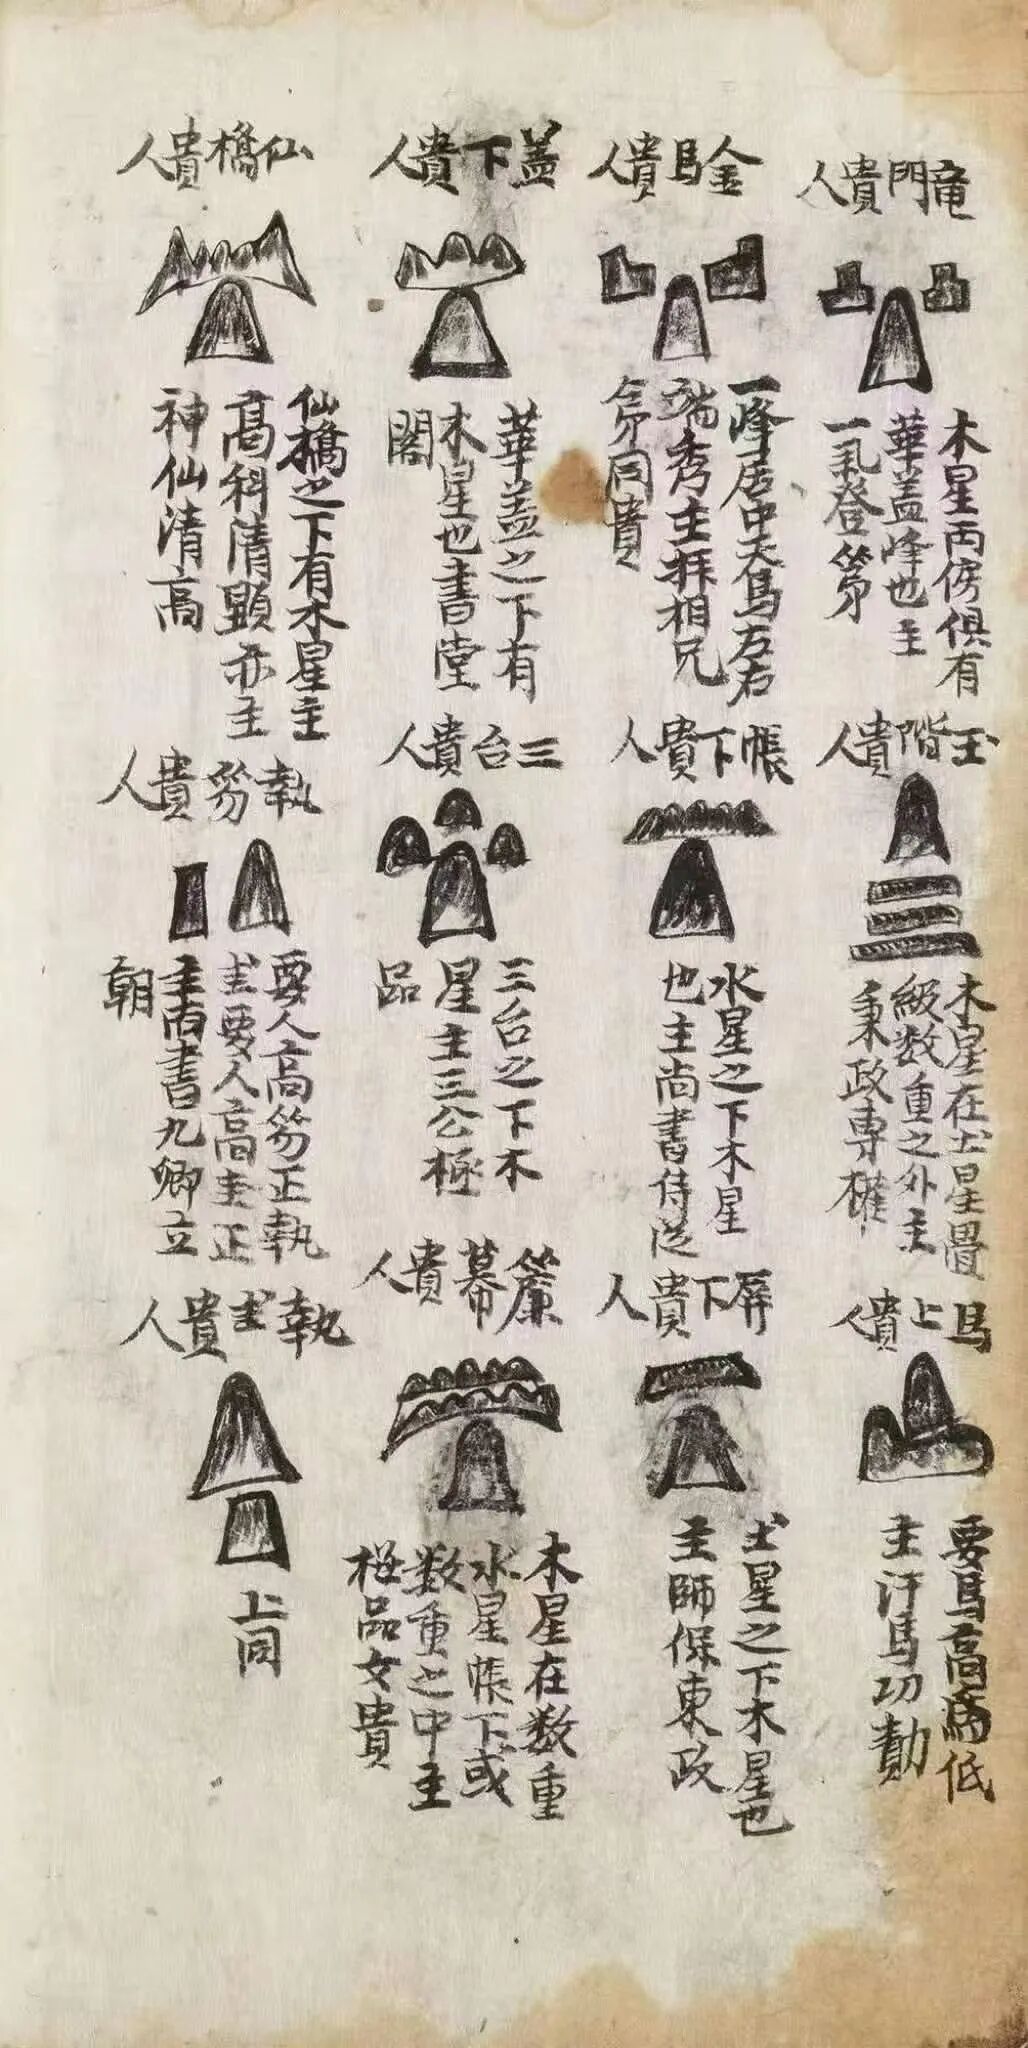 竜門貴人
木星两傍俱有
華盖峰也主
一氣登第
玉階貴人
木星在土星疊
級数重之外主
秉政專權
馬上貴人
要馬高為低
主汗馬功勳
金馬貴人
一峰居中天馬左右
端秀主拜相兄
弟同貴
帳下貴人
水星之下木星
也主尚書侍従
屏下貴人
土星之下木星也
主師保東政
盖下貴人
華盖之下有
木星也書堂
閣
三台貴人
三台之下木
星主三公極
品
簾幕貴人
木星在数重
水星帳下或
数重之中主
極品女貴
仙橋貴人
仙橋之下有木星主
高科清顯亦主
神仙清高
執笏貴人
要人高笏正執
圭要人高圭正
主両書九卿立
朝
執圭貴人
上同